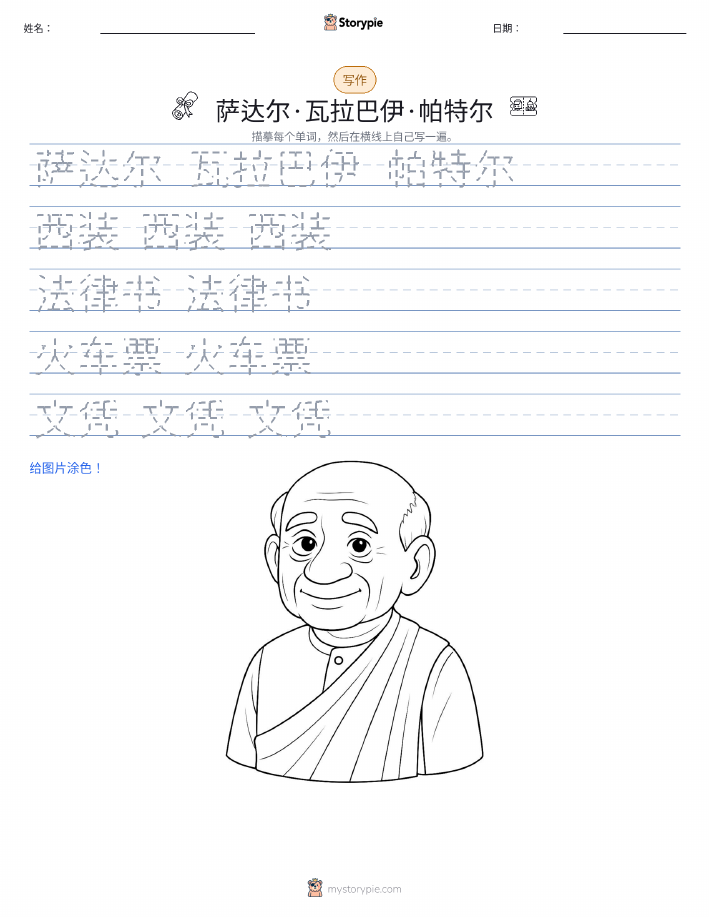 姓名：
Storypie
日期：
写作
萨达尔·瓦拉巴伊·帕特尔
描摹每个单词，然后在横线上自己写一遍。
萨达尔 瓦拉巴伊 帕特尔
西装 西装 西装
法律书 法律书
火车票 火车票
文凭 文凭 文凭
给图片涂色！
mystorypie.com